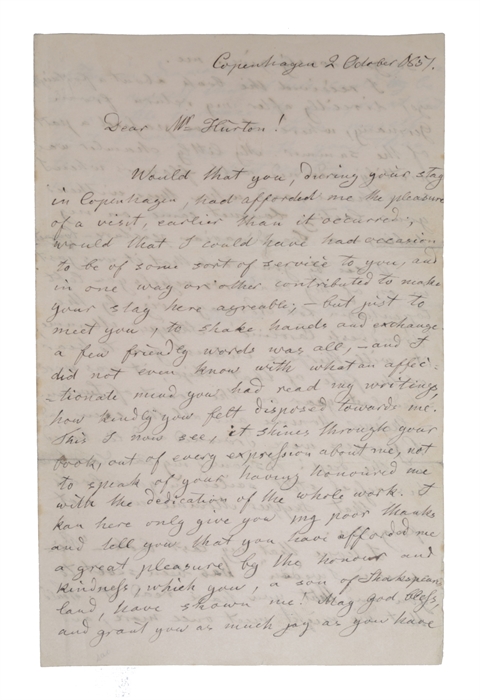 Copenhagen 2 October 1851.
Dear Mr Hurton!
Would that you, during your stay
in Copenhagen, had afforded me the pleasure
of a visit, earlier than it occurred;
would that I could have had occasion
to be of some sort of service to you, and
in one way or other contributed to make
your stay here agreable; – but just to
meet you, to shake hands and exchange
a few friendly words was all, – and I
did not even know with what an affec-
-tionate mind you had read my writings,
how kindly you felt disposed towards me.
This I now see, it shines through your
book, out of every expression about me, not
to speak of your having honoured me
with the dedication of the whole work. I
kan here only give you my poor thanks
and tell you that you have afforded me
a great pleasure by the honour and
kindness, which you, a son of Shakspears
land, have shown me! May god bless,
and grant you as much joy as you have